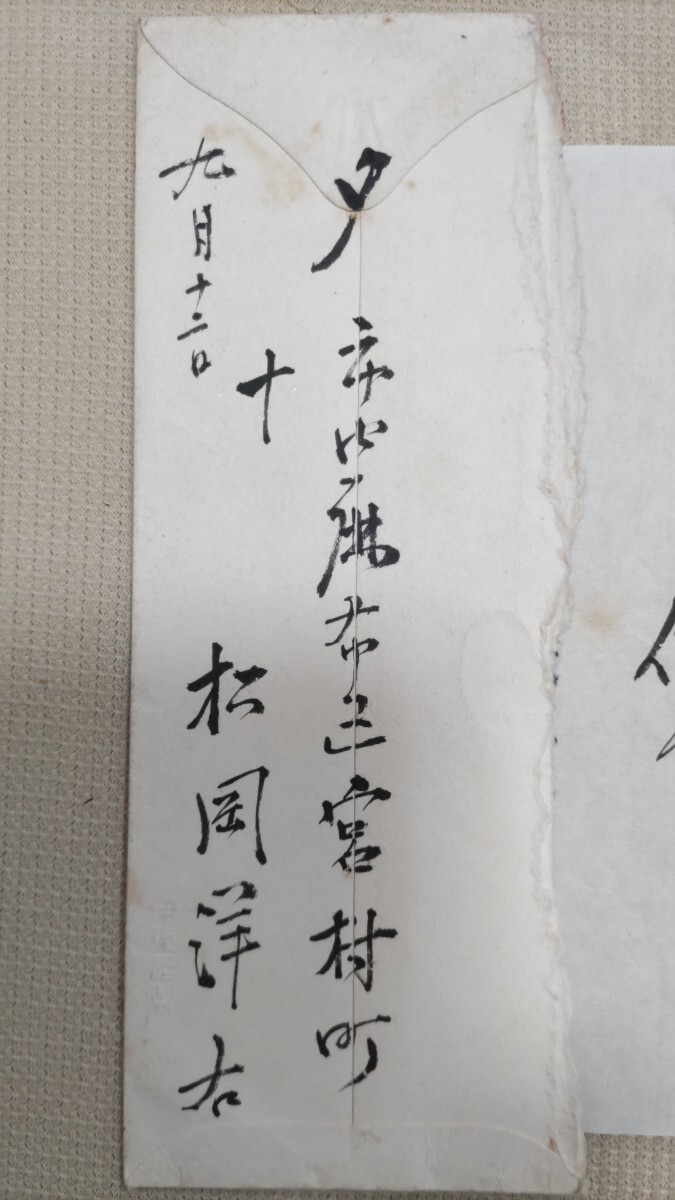 〆
市内麻布区宮村町
十
松岡洋右
九月十二日